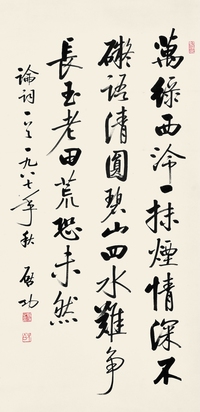 萬綠西泠一抹煙情深不
礙語清圓碧山四水難爭
長玉老田荒恐未然
論詞一首一九八七年秋 啟功